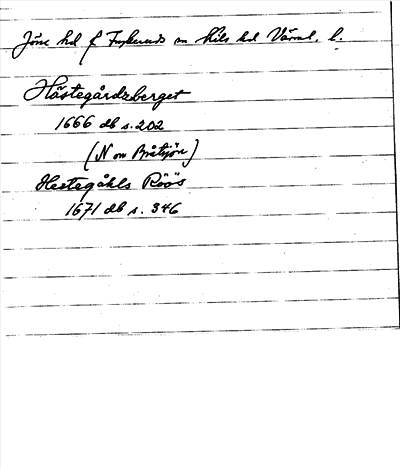 Jöns hd f Frykeruds nu Kils hd Värml. l.
Hästegårdzberget
1666 db s. 202
(N om Bråtsjön)
Hestegåhls Röö's
1671 db s. 346